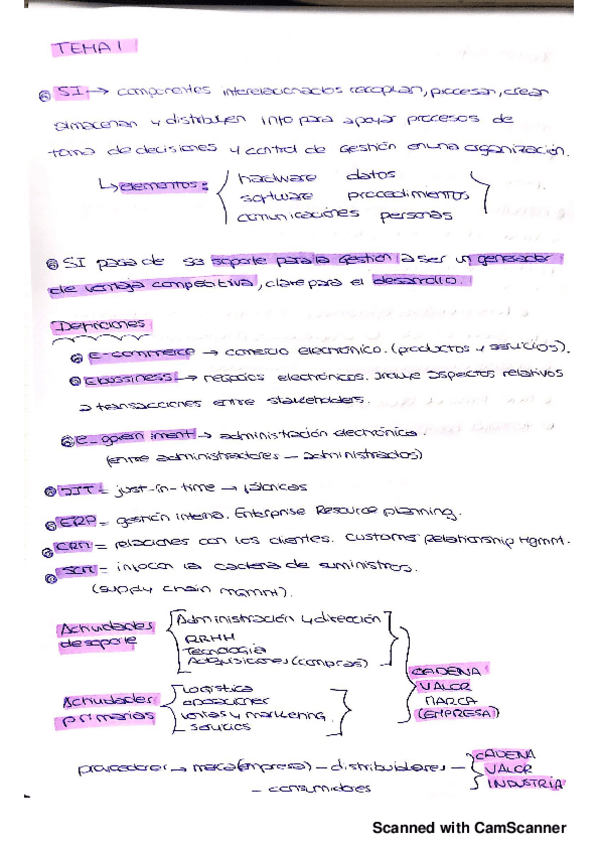 TEMA 1
SI → componentes interrelacionados recopilan, procesar, crear
almacenan y distribuyen info para apoyar procesos de
toma de decisiones y control de gestión en una organización.
↳ elementos: { hardware datos
software procedimientos
comunicaciones personas }
SI pasa de ser soporte para la gestión a ser un generador
de ventaja competitiva, clave para el desarrollo.
Definiciones
E-commerce → comercio electrónico. (productos y servicios).
Ebussiness → negocios electrónicos. Incluye aspectos relativos
a transacciones entre stakeholders.
→ administración electrónica.
(entre administradores – administrados)
JIT = just-in-time →
ERP = gestión interna. Enterprise Resource planning.
CRM = relaciones con los clientes. Customer Relationship Mgmm.
SCM = la cadena de suministros.
(supply chain mgmnt).
Actividades de soporte { Administración y dirección
RRHH
Tecnología
Adquisiciones (compras) }
Actividades primarias { Logística
operaciones
ventas y marketing
servicios }
CADENA
VALOR
MARCA
(EMPRESA)
proveedores → marca (empresa) – distribuidores –
– consumidores
CADENA
VALOR
INDUSTRIA
Scanned with CamScanner